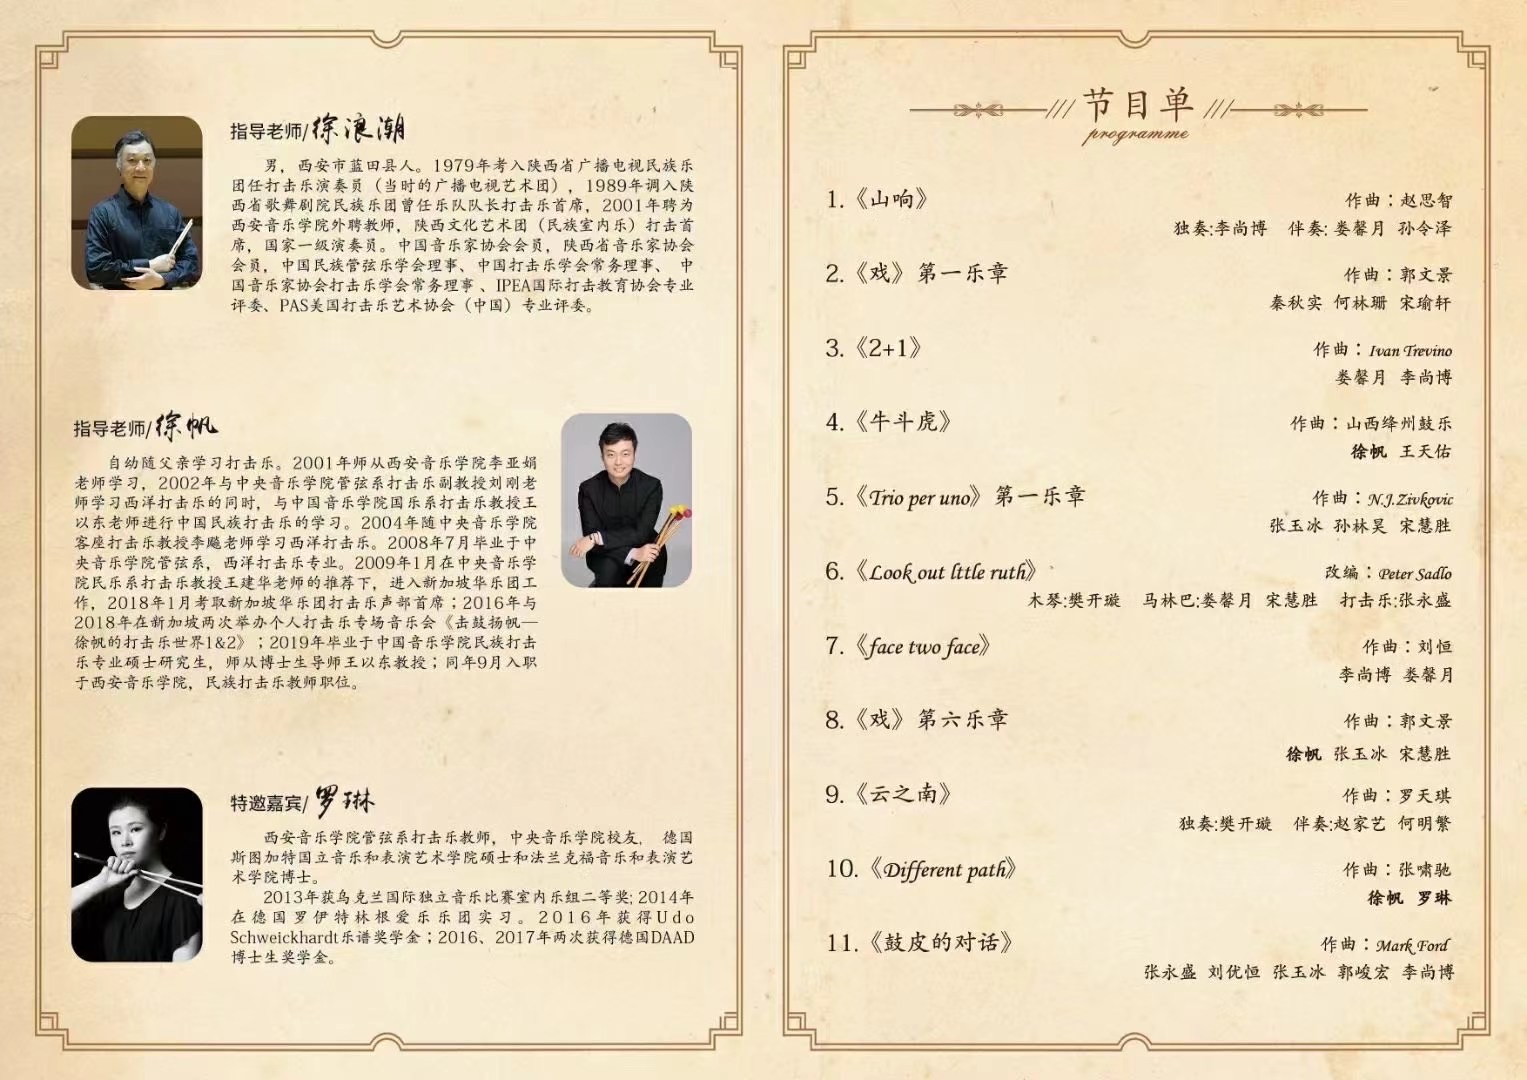 指导老师/徐浪潮
男，西安市蓝田县人。1979年考入陕西省广播电视民族乐
团任打击乐演奏员（当时的广播电视艺术团），1989年调入陕
西省歌舞剧院民族乐团曾任乐队队长打击乐首席，2001年聘为
西安音乐学院外聘教师，陕西文化艺术团（民族室内乐）打击首
席，国家一级演奏员。中国音乐家协会会员，陕西省音乐家协会
会员，中国民族管弦乐学会理事、中国打击乐学会常务理事、 中
国音乐家协会打击乐学会常务理事 、IPEA国际打击教育协会专业
评委、PAS美国打击乐艺术协会（中国）专业评委。
指导老师/徐帆
自幼随父亲学习打击乐。2001年师从西安音乐学院李亚娟
老师学习，2002年与中央音乐学院管弦系打击乐副教授刘刚老
师学习西洋打击乐的同时，与中国音乐学院国乐系打击乐教授王
以东老师进行中国民族打击乐的学习。2004年随中央音乐学院
客座打击乐教授李飚老师学习西洋打击乐。2008年7月毕业于中
央音乐学院管弦系，西洋打击乐专业。2009年1月在中央音乐学
院民乐系打击乐教授王建华老师的推荐下，进入新加坡华乐团工
作，2018年1月考取新加坡华乐团打击乐声部首席；2016年与
2018年在新加坡两次举办个人打击乐专场音乐会《击鼓扬帆—
徐帆的打击乐世界1&2》；2019年毕业于中国音乐学院民族打击
乐专业硕士研究生，师从博士生导师王以东教授；同年9月入职
于西安音乐学院，民族打击乐教师职位。
特邀嘉宾/罗琳
西安音乐学院管弦系打击乐教师，中央音乐学院校友， 德国
斯图加特国立音乐和表演艺术学院硕士和法兰克福音乐和表演艺
术学院博士。
2013年获乌克兰国际独立音乐比赛室内乐组二等奖; 2014年
在德国罗伊特林根爱乐乐团实习。2016年获得Udo
Schweickhardt乐谱奖学金；2016、2017年两次获得德国DAAD
博士生奖学金。
节目单
programme
1.《山响》 作曲：赵思智
独奏:李尚博 伴奏: 娄馨月 孙令泽
2.《戏》第一乐章 作曲：郭文景
秦秋实 何林珊 宋瑜轩
3.《2+1》 作曲：Ivan Trevino
娄馨月 李尚博
4.《牛斗虎》 作曲：山西绛州鼓乐
徐帆 王天佑
5.《Trio per uno》第一乐章 作曲：N.J.Zivkovic
张玉冰 孙林昊 宋慧胜
6.《Look out lttle ruth》 改编：Peter Sadlo
木琴:樊开璇 马林巴:娄馨月 宋慧胜 打击乐:张永盛
7.《face two face》 作曲：刘恒
李尚博 娄馨月
8.《戏》第六乐章 作曲：郭文景
徐帆 张玉冰 宋慧胜
9.《云之南》 作曲：罗天琪
独奏:樊开璇 伴奏:赵家艺 何明繁
10.《Different path》 作曲：张啸驰
徐帆 罗琳
11.《鼓皮的对话》 作曲：Mark Ford
张永盛 刘优恒 张玉冰 郭峻宏 李尚博